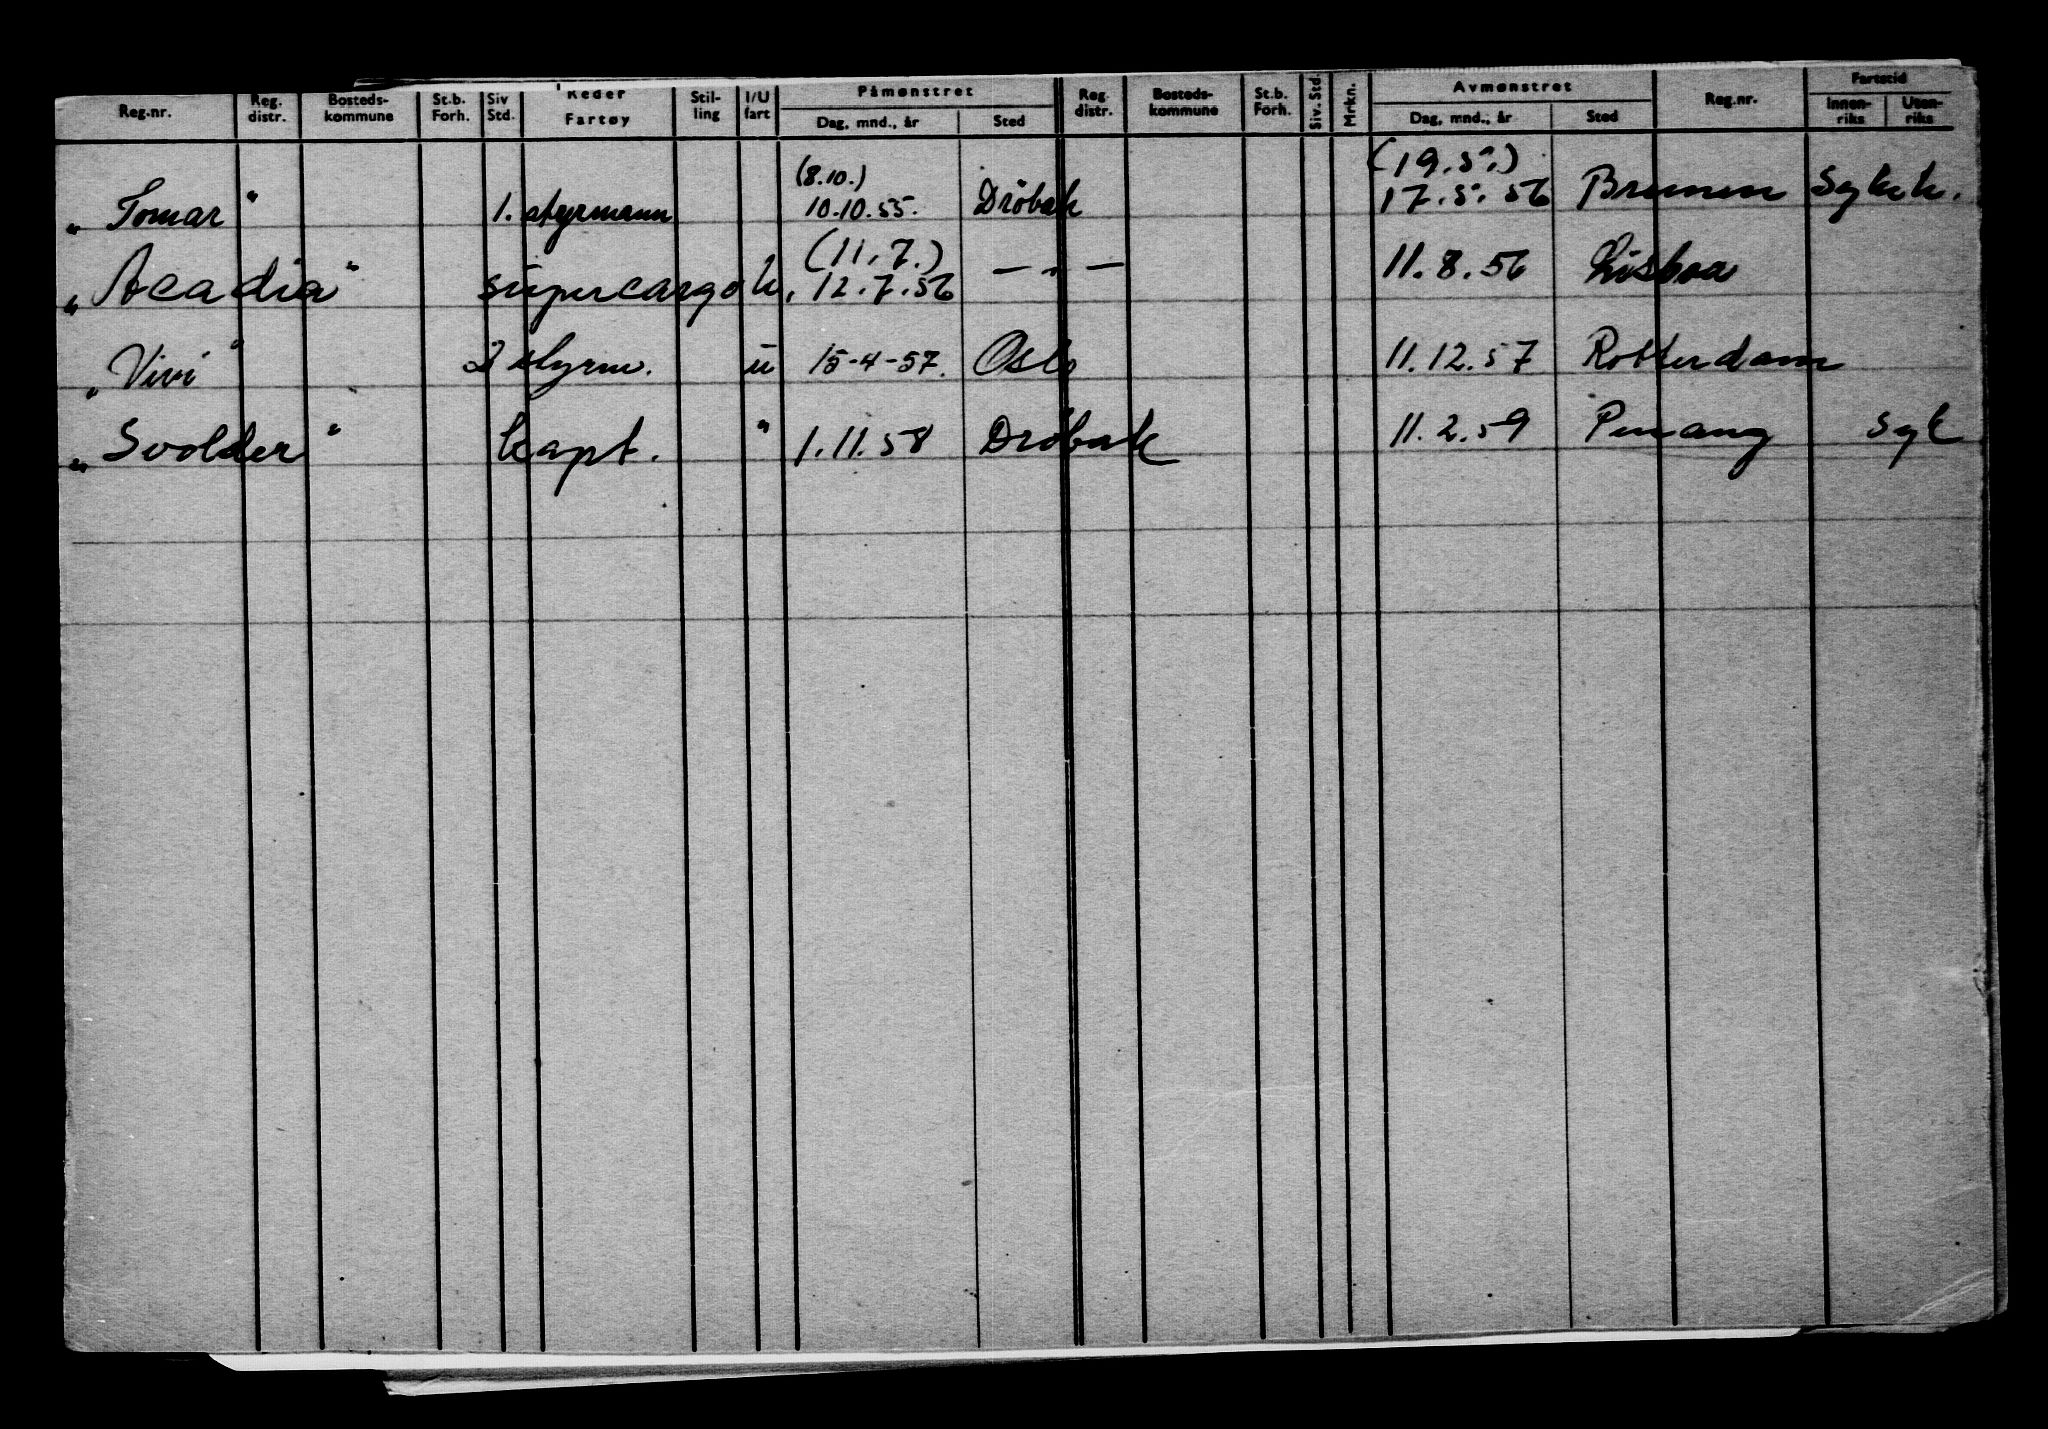 Reg.nr. Reg. distr. Bosteds-kommune St.b. Forh. Siv Std. Reder Fartøy Stil-ling I/U fart Påmønstret Dag, mnd., år Sted Reg. distr. Bosteds-kommune St.b. Forh. Siv. Std Mrkn. Avmønstret Dag, mnd., år Sted Reg.nr. Fartstid Innen-riks Uten-riks
(8.10.) (19.5.)
„Tomar" 1. styrmann 10.10.55. Dröbak 17.5.56 Bremen Sykeh.
(11.7.)
„Acadia" supercargo u. 12.7.56 — „ — 11.8.56 Lisboa
„Vivi" 2 styrm. u 15-4-57. Oslo 11.12.57 Rotterdam
„Svolder" kapt. " 1.11.58 Dröbak 11.2.59 Penang Syk